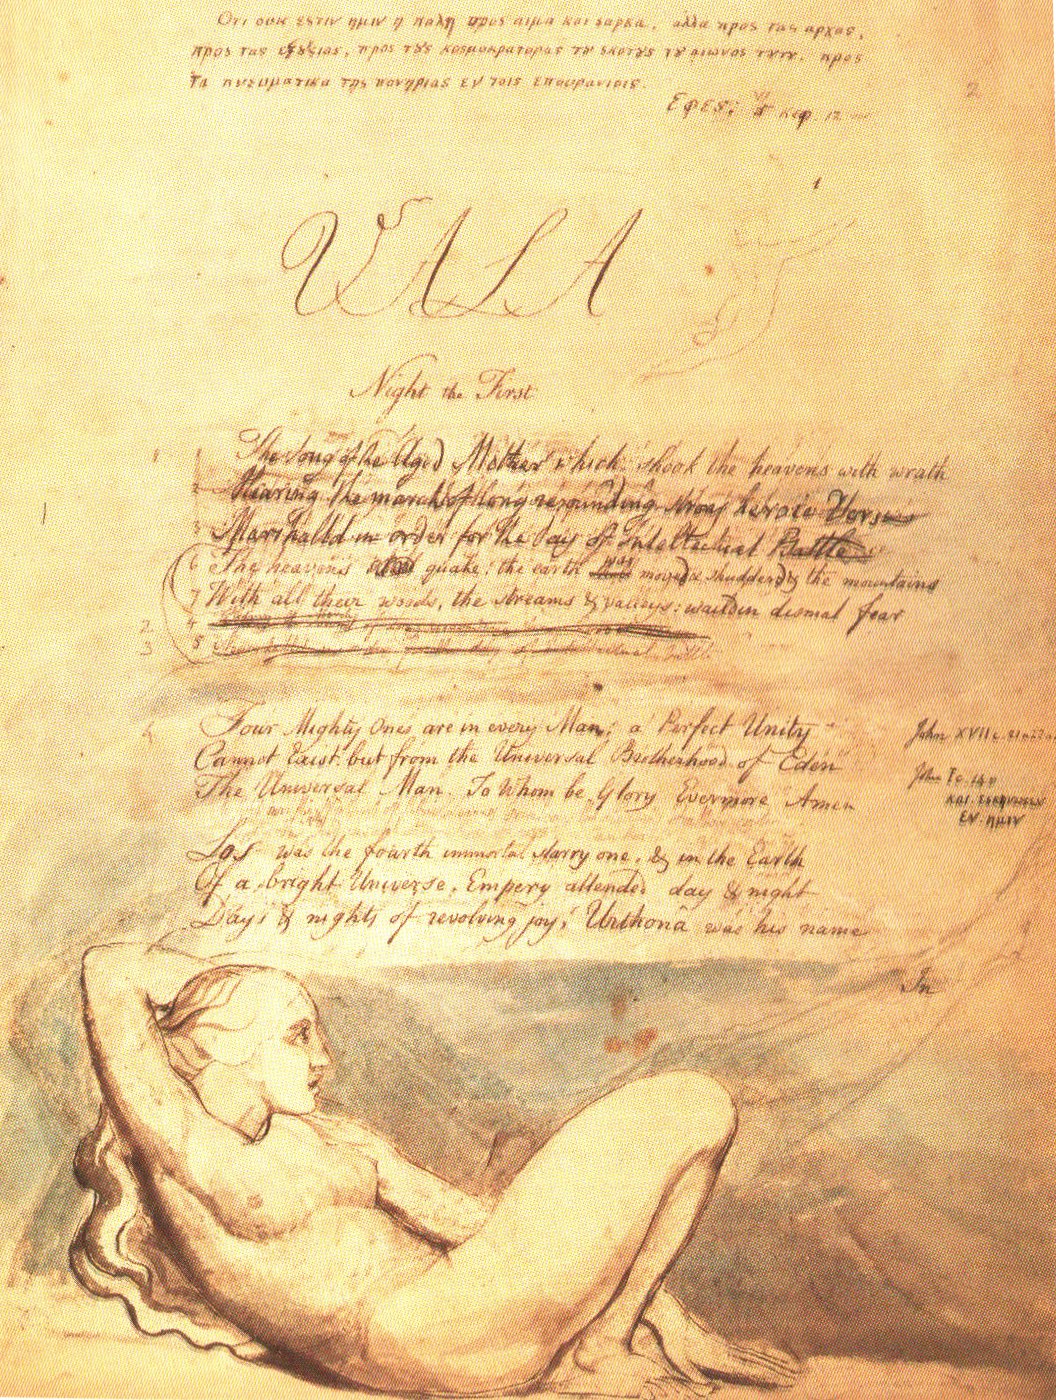 Οτι ουκ εστιν ημιν η παλη προς αιμα και σαρκα, αλλα προς τας αρχας,
προς τας εξȣσιας, προς τȣς κοσμοκρατορας τȣ σκοτȣς τȣ αιωνος τȣτȣ, προς
τα πνευματικα της πονηριας εν τοις επουρανιοις.
Εφεσ: κεφ. 12
2
1
VALA
Night the First
1 The Song of the Aged Mother which shook the heavens with wrath
2 Hearing the march of long resounding strong heroic Verse
3 Marshalld in order for the day of Intellectual Battle
6 The heavens quake: the earth was moved & shudderd & the mountains
7 With all their woods, the streams & valleys: waild in dismal fear
2 4
3 5
4 Four Mighty Ones are in every Man; a Perfect Unity
John XVII c.
Cannot Exist. but from the Universal Brotherhood of Eden
John I c. 14 v
The Universal Man. To Whom be Glory Evermore Amen
και εσκηνωσεν
εν ημιν
Los was the fourth immortal starry one, & in the Earth
Of a bright Universe, Empery attended day & night
Days & nights of revolving joy, Urthona was his name
In